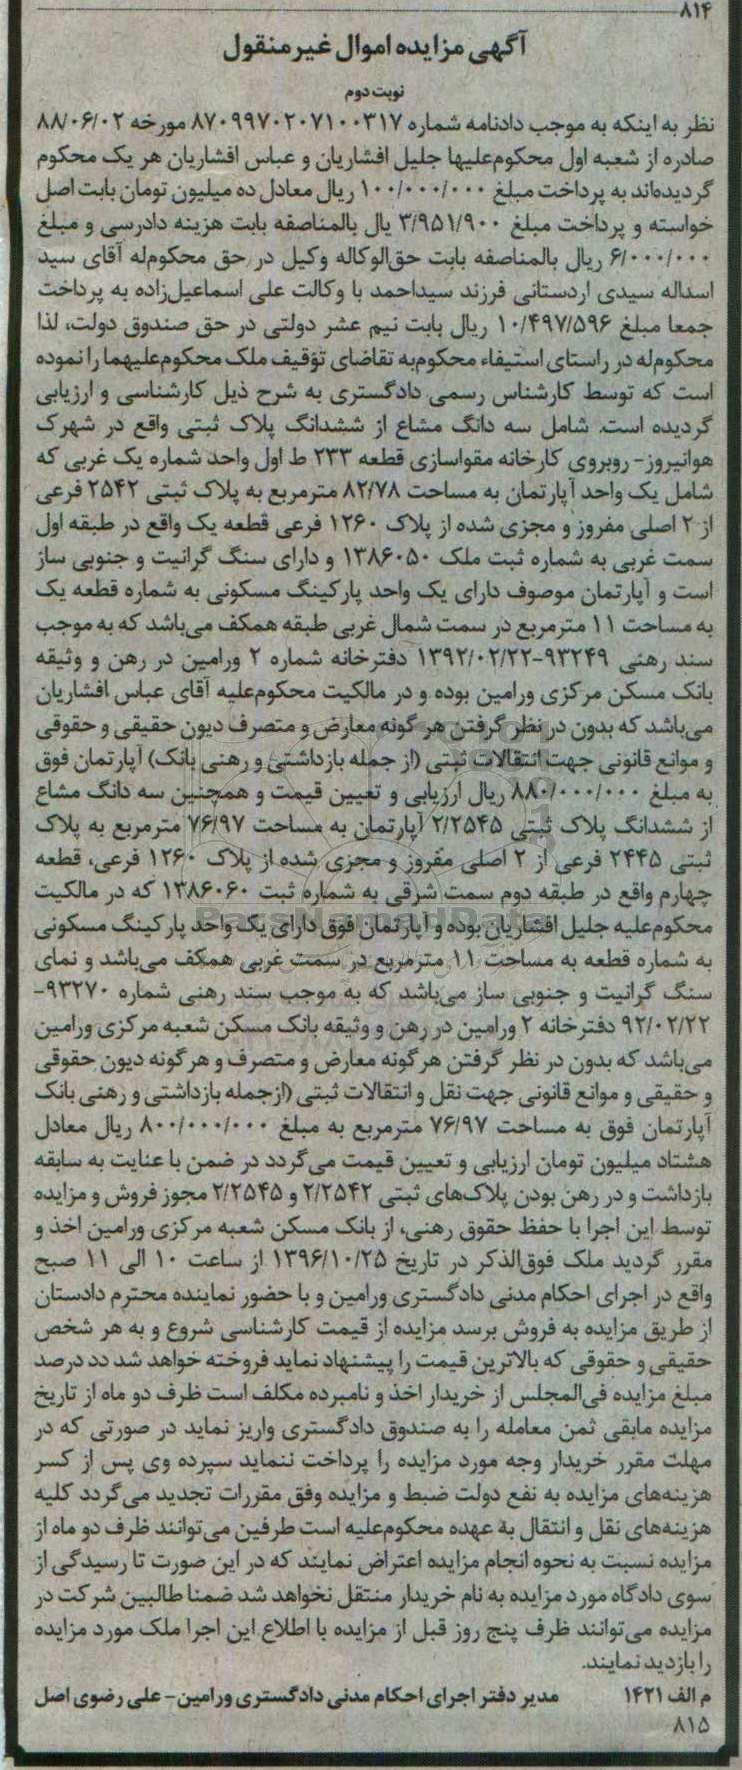 ۸۱۴
آگهی مزایده اموال غیرمنقول
نوبت دوم
نظر به اینکه به موجب دادنامه شماره ۸۷۰۹۹۷۰۲۰۷۱۰۰۳۱۷ مورخه ۸۸/۰۶/۰۲
صادره از شعبه اول محکوم‌علیها جلیل افشاریان و عباس افشاریان هر یک محکوم
گردیده‌اند به پرداخت مبلغ ۱۰۰/۰۰۰/۰۰۰ ریال معادل ده میلیون تومان بابت اصل
خواسته و پرداخت مبلغ ۳/۹۵۱/۹۰۰ یال بالمناصفه بابت هزینه دادرسی و مبلغ
۶/۰۰۰/۰۰۰ ریال بالمناصفه بابت حق‌الوکاله وکیل در حق محکوم‌له آقای سید
اسداله سیدی اردستانی فرزند سیداحمد با وکالت علی اسماعیل‌زاده به پرداخت
جمعا مبلغ ۱۰/۴۹۷/۵۹۶ ریال بابت نیم عشر دولتی در حق صندوق دولت، لذا
محکوم‌له در راستای استیفاء محکوم‌به تقاضای توقیف ملک محکوم‌علیهما را نموده
است که توسط کارشناس رسمی دادگستری به شرح ذیل کارشناسی و ارزیابی
گردیده است. شامل سه دانگ مشاع از ششدانگ پلاک ثبتی واقع در شهرک
هوانیروز- روبروی کارخانه مقواسازی قطعه ۲۳۳ ط اول واحد شماره یک غربی که
شامل یک واحد آپارتمان به مساحت ۸۲/۷۸ مترمربع به پلاک ثبتی ۲۵۴۲ فرعی
از ۲ اصلی مفروز و مجزی شده از پلاک ۱۲۶۰ فرعی قطعه یک واقع در طبقه اول
سمت غربی به شماره ثبت ملک ۱۳۸۶۰۵۰ و دارای سنگ گرانیت و جنوبی ساز
است و آپارتمان موصوف دارای یک واحد پارکینگ مسکونی به شماره قطعه یک
به مساحت ۱۱ مترمربع در سمت شمال غربی طبقه همکف می‌باشد که به موجب
سند رهنی ۹۳۲۴۹-۱۳۹۲/۰۲/۲۲ دفترخانه شماره ۲ ورامین در رهن و وثیقه
بانک مسکن مرکزی ورامین بوده و در مالکیت محکوم‌علیه آقای عباس افشاریان
می‌باشد که بدون در نظر گرفتن هر گونه معارض و متصرف دیون حقیقی و حقوقی
و موانع قانونی جهت انتقالات ثبتی (از جمله بازداشتی و رهنی بانک) آپارتمان فوق
به مبلغ ۸۸۰/۰۰۰/۰۰۰ ریال ارزیابی و تعیین قیمت و همچنین سه دانگ مشاع
از ششدانگ پلاک ثبتی ۲/۲۵۴۵ آپارتمان به مساحت ۷۶/۹۷ مترمربع به پلاک
ثبتی ۲۴۴۵ فرعی از ۲ اصلی مفروز و مجزی شده از پلاک ۱۲۶۰ فرعی، قطعه
چهارم واقع در طبقه دوم سمت شرقی به شماره ثبت ۱۳۸۶۰۶۰ که در مالکیت
محکوم‌علیه جلیل افشاریان بوده و آپارتمان فوق دارای یک واحد پارکینگ مسکونی
به شماره قطعه به مساحت ۱۱ مترمربع در سمت غربی همکف می‌باشد و نمای
سنگ گرانیت و جنوبی ساز می‌باشد که به موجب سند رهنی شماره ۹۳۲۷۰-
۹۲/۰۲/۲۲ دفترخانه ۲ ورامین در رهن و وثیقه بانک مسکن شعبه مرکزی ورامین
می‌باشد که بدون در نظر گرفتن هرگونه معارض و متصرف و هرگونه دیون حقوقی
و حقیقی و موانع قانونی جهت نقل و انتقالات ثبتی (ازجمله بازداشتی و رهنی بانک
آپارتمان فوق به مساحت ۷۶/۹۷ مترمربع به مبلغ ۸۰۰/۰۰۰/۰۰۰ ریال معادل
هشتاد میلیون تومان ارزیابی و تعیین قیمت می‌گردد در ضمن با عنایت به سابقه
بازداشت و در رهن بودن پلاک‌های ثبتی ۲/۲۵۴۲ و ۲/۲۵۴۵ مجوز فروش و مزایده
توسط این اجرا با حفظ حقوق رهنی، از بانک مسکن شعبه مرکزی ورامین اخذ و
مقرر گردید ملک فوق‌الذکر در تاریخ ۱۳۹۶/۱۰/۲۵ از ساعت ۱۰ الی ۱۱ صبح
واقع در اجرای احکام مدنی دادگستری ورامین و با حضور نماینده محترم دادستان
از طریق مزایده به فروش برسد مزایده از قیمت کارشناسی شروع و به هر شخص
حقیقی و حقوقی که بالاترین قیمت را پیشنهاد نماید فروخته خواهد شد دد درصد
مبلغ مزایده فی‌المجلس از خریدار اخذ و نامبرده مکلف است ظرف دو ماه از تاریخ
مزایده مابقی ثمن معامله را به صندوق دادگستری واریز نماید در صورتی که در
مهلت مقرر خریدار وجه مورد مزایده را پرداخت ننماید سپرده وی پس از کسر
هزینه‌های مزایده به نفع دولت ضبط و مزایده وفق مقررات تجدید می‌گردد کلیه
هزینه‌های نقل و انتقال به عهده محکوم‌علیه است طرفین می‌توانند ظرف دو ماه از
مزایده نسبت به نحوه انجام مزایده اعتراض نمایند که در این صورت تا رسیدگی از
سوی دادگاه مورد مزایده به نام خریدار منتقل نخواهد شد ضمنا طالبین شرکت در
مزایده می‌توانند ظرف پنج روز قبل از مزایده با اطلاع این اجرا ملک مورد مزایده
را بازدید نمایند.
م الف ۱۴۲۱ مدیر دفتر اجرای احکام مدنی دادگستری ورامین- علی رضوی اصل
۸۱۵